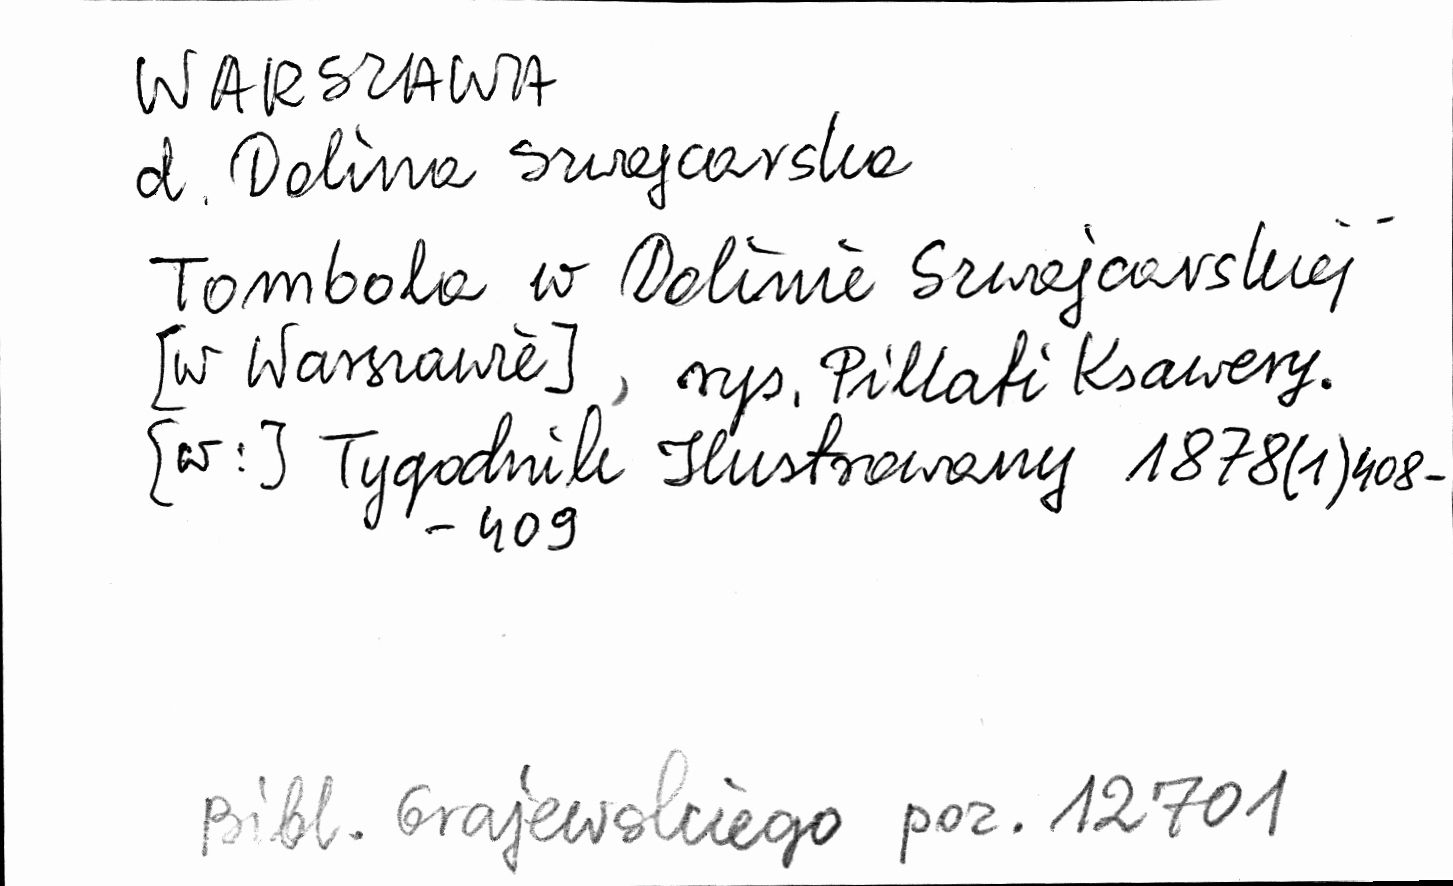 WARSZAWA
d. Dolina Szwajcarska
Tombola w Dolinie Szwajcarskiej
[w Warszawie], rys. Pillati Ksawery.
[w:] Tygodnik Ilustrowany 1878(1)408-
- 409
Bibl. Grajewskiego poz. 12701